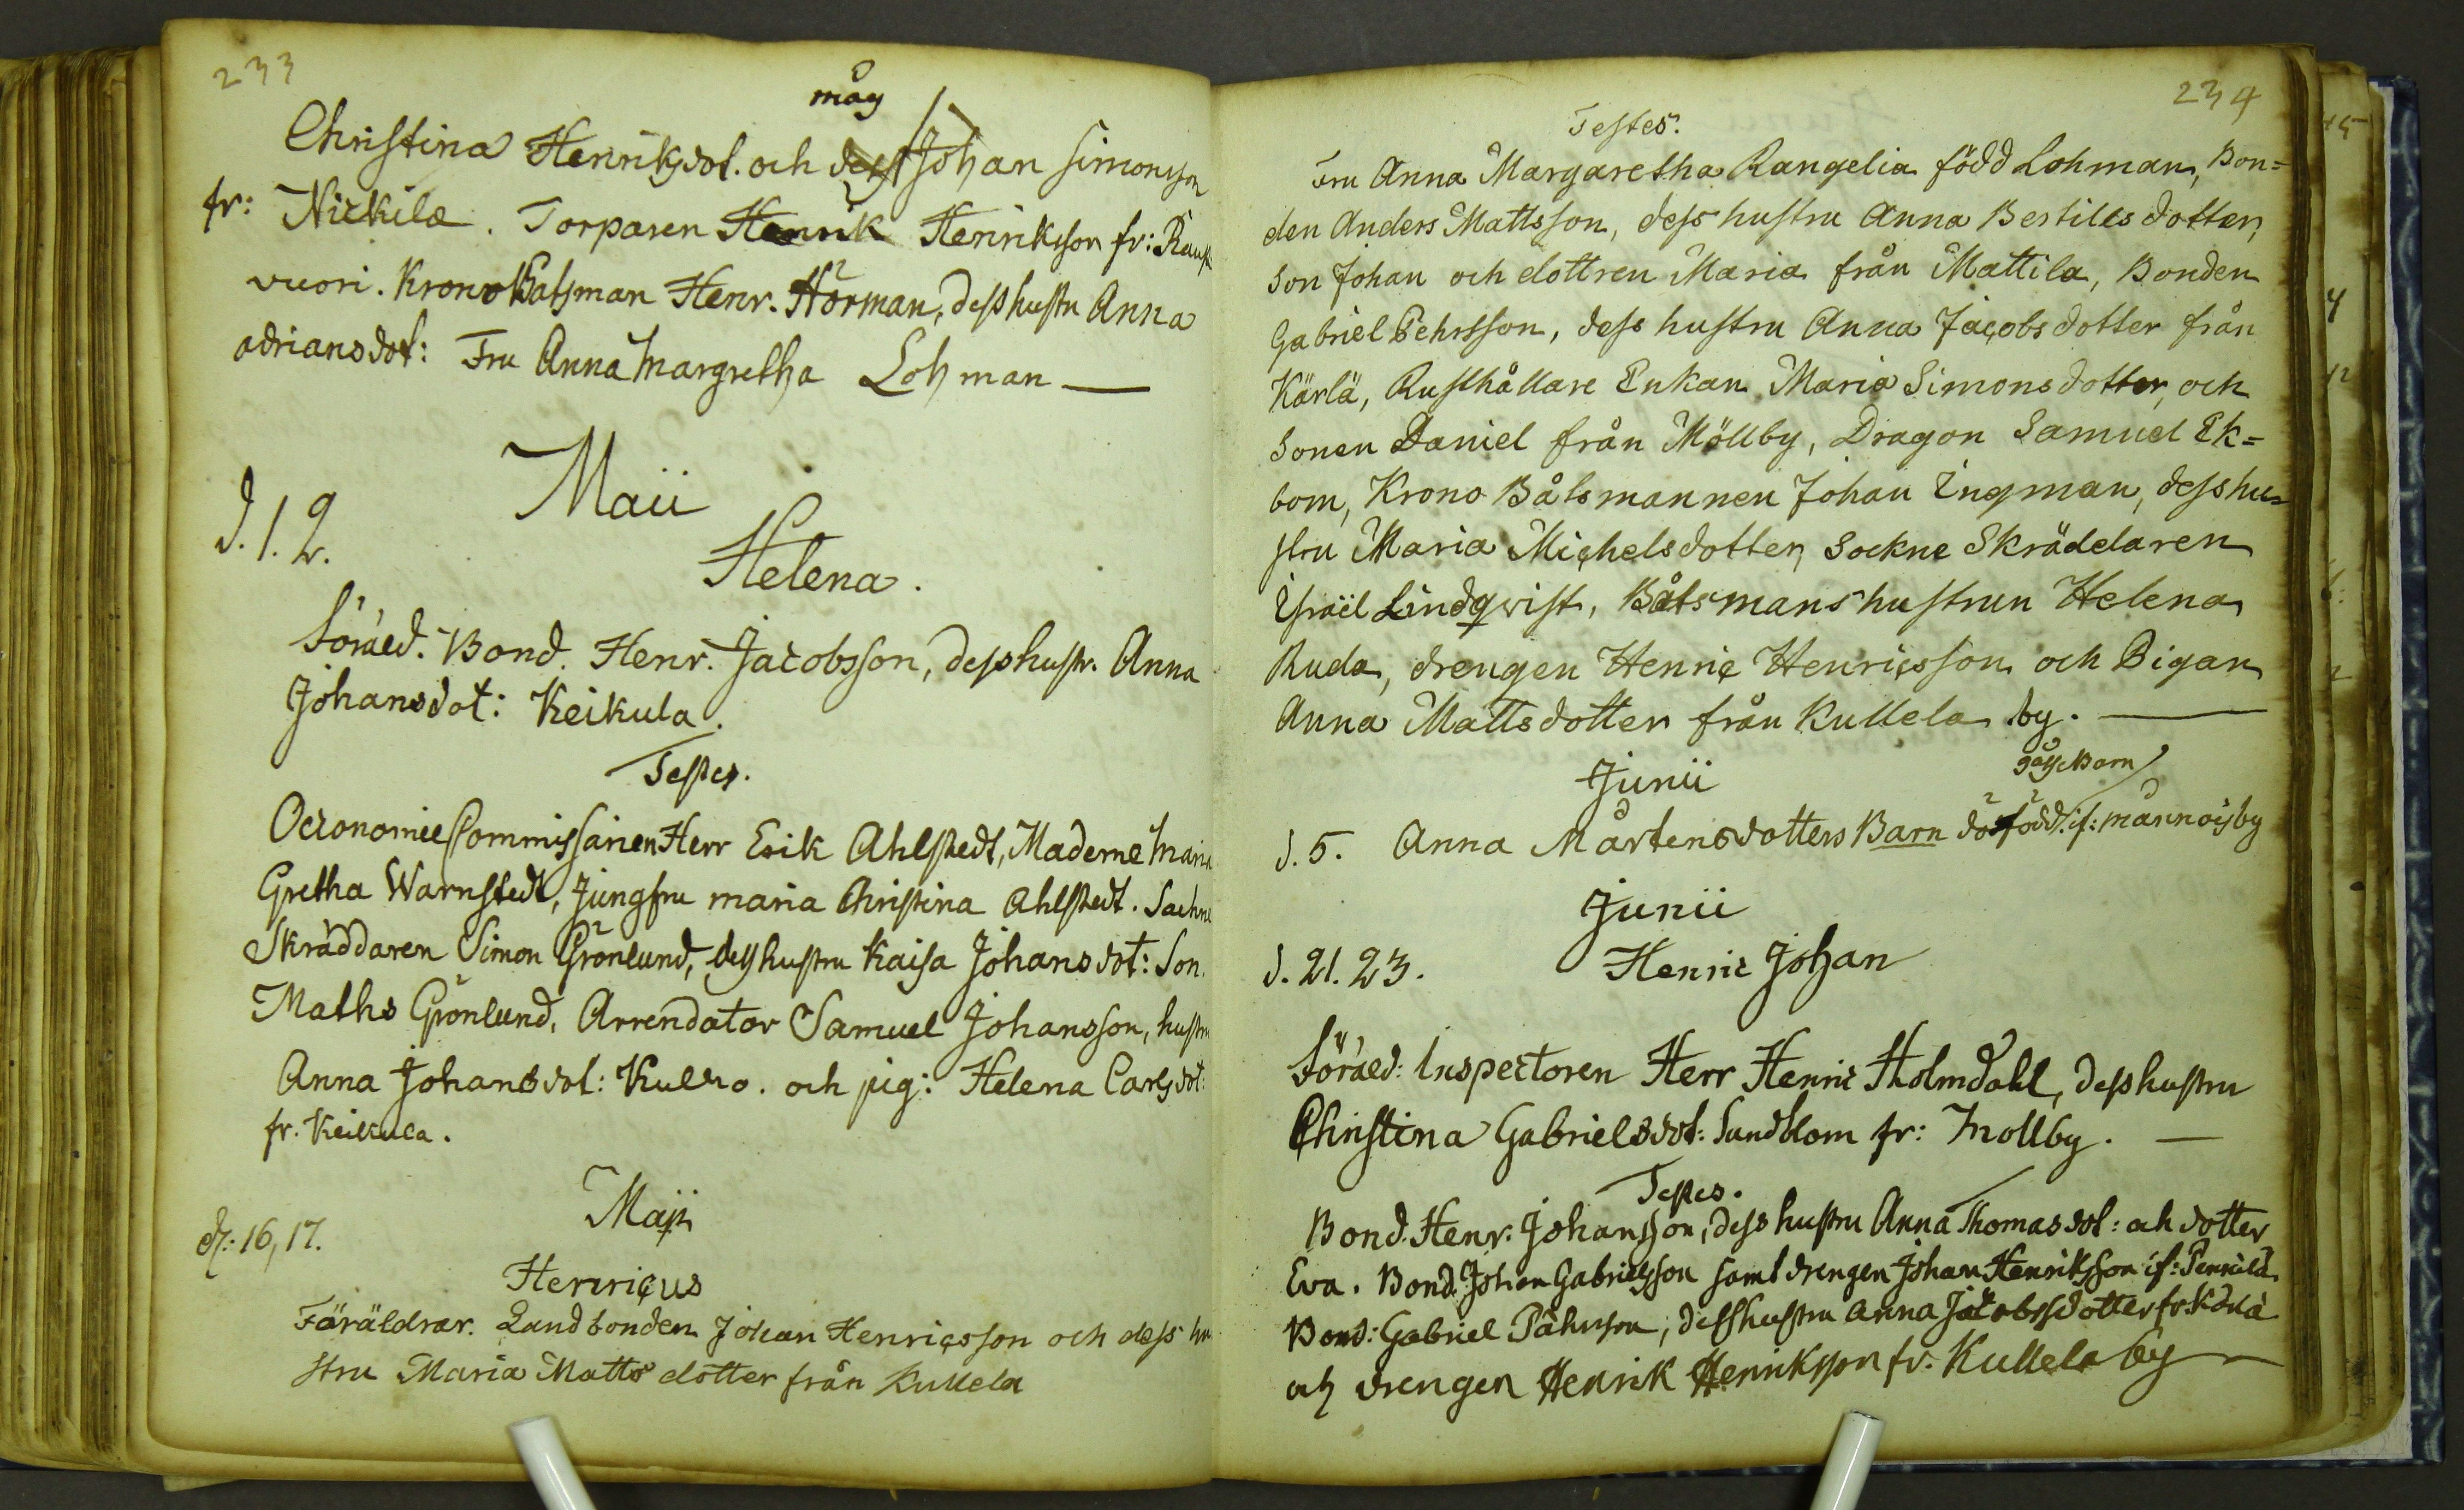 233
måg
Christina Henriksdot. och dess Johan Simonsson
fr: Nickila. Torparen Henrik Henriksson fr: Raus
vuori. Krono Båtsman Henr. Hörman, dess hustru Anna
adriansdot: Fru Anna Margretha Lohman —
Maii
d. 1. 2.
Helena.
Föräld. Bond. Henr. Jacobsson, dess hustr. Anna
Johansdot: Keikula.
Testes.
Oeconomie Commissarien Herr Erik Ahlstedt, Madame Maria
Gretha Warnstedt, Jungfru maria Christina Ahlstedt. Sockne
Skräddaren Simon Grönlund, dess hustru Kaisa Johansdot: Son
Maths Grönlund, Arrendator Samuel Johansson, hustru
Anna Johansdot: Kullo. och pig: Helena Carlsdot:
fr. Keikula.
Maji
d. 16, 17.
Henricus
Föräldrar. Landbonden Johan Henricsson och dess hu
stru Maria Matts dotter från Kullela
234
Testes.
Fru Anna Margaretha Rangelia född Lohman, Bon=
den Anders Mattsson, dess hustru Anna Bertills dotter,
son Johan och dottren Maria från Mattila, Bonden
Gabriel Pehrsson, dess hustru Anna Jacobs dotter från
Kärlä, Rusthållare Enkan Maria Simons dotter, och
Sonen Daniel från Möllby, Dragon Samuel Ek=
bom, Krono Båtsmannen Johan Engman, dess hu=
stru Maria Michelsdotter, Sockne Skräddaren
Israël Lindqvist, Båtsmans hustrun Helena
Ruda, drengen Henric Henricsson och Pigan
Anna Mattsdotter från Kullela by. —
Junii
gosse Barn
d. 5. Anna Mårtensdotters Barn dödfödd. if: männois by
Junii
d. 21. 23. Henric Johan
Föräld: Inspectoren Herr Henric Holmdahl, dess hustru
Christina Gabrielsdot: Sundblom fr: Mollby. —
Testes.
Bond. Henr. Johansson, dess hustru Anna Thomasdot: och dotter
Eva. Bond. Johan Gabrielsson samt drengen Johan Henriksson if: Pennilä.
Bond: Gabriel Pährsson, dess hustru Anna Jacobsdotter fr. Kärlä
och drengen Henrik Henriksson fr. Kullela by —